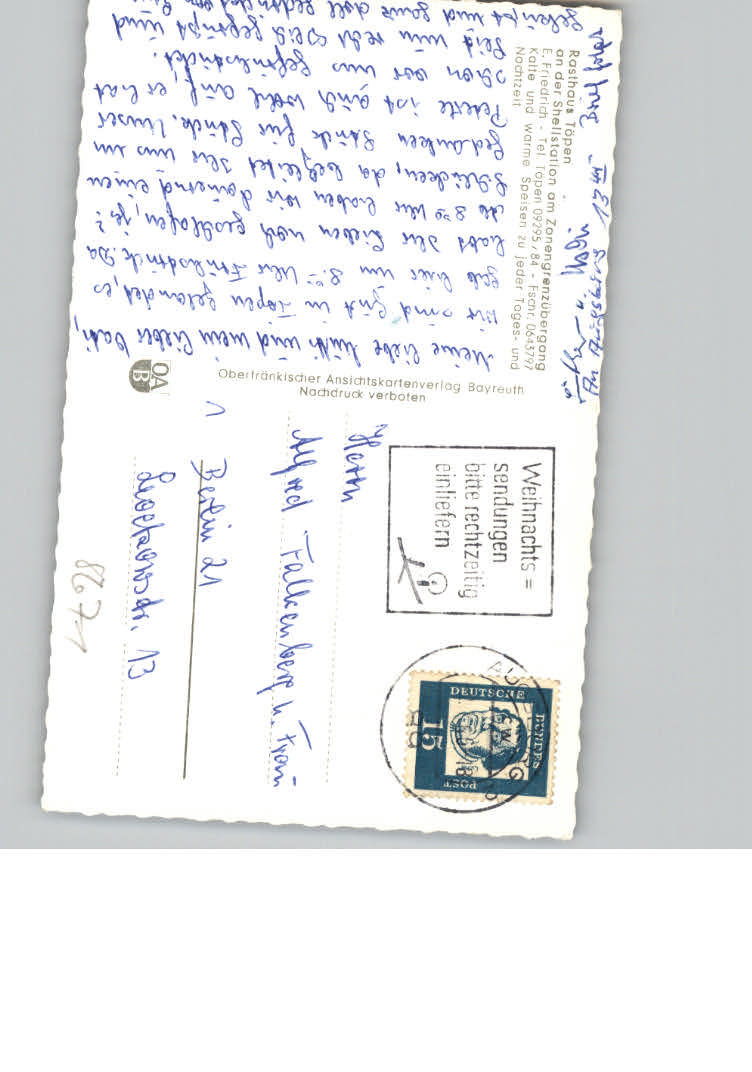 Rasthaus Töpen
an der Shellstation am Zonengrenzübergang
E. Friedrich - Tel. Töpen 09295/84 - Fschr. 0643797
Kalte und warme Speisen zu jeder Tages- und
Nachtzeit
Meine liebe Mutti und mein lieber Vati,
wir sind gut in Töpen gelandet, es
gab hier um 8.00 Uhr Frühstück. Da
habt Ihr Lieben noch geschlafen, ja?
Ab 8.30 Uhr haben wir dauernd einen
Schlücken, da begleitet Ihr uns in
Gedanken Stück für Stück. Unser
Peterle ist auch wohl auf, er hat
schon vor uns gefrühstückt.
Seid nun recht lieb gegrüßt und
geküßt und ganz doll gedrückt von
Oberfränkischer Ansichtskartenverlag Bayreuth
Nachdruck verboten
OA
B
Weihnachts=
sendungen
bitte rechtzeitig
einliefern
DEUTSCHE
BUNDES
POST
15
Herrn
Alfred Falkenberg u. Frau
1 Berlin 21
13
8671